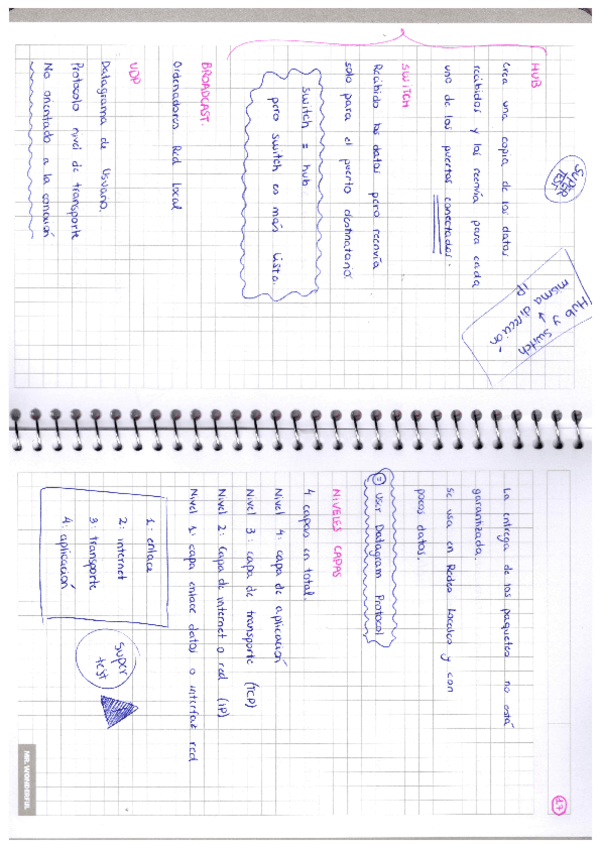 HUB
SUPER
TEST
Crea una copia de los datos
recibidos y los reenvía para cada
uno de los puertos conectados.
Hub y switch
↓
misma dirección
IP
SWITCH
Recibido los datos pero reenvía
solo para el puerto destinatario.
switch = hub
pero switch es más listo.
BROADCAST.
Ordenadores Red Local
UDP
Datagrama de Usuario.
Protocolo nivel de transporte
No orientado a la conexión
17
La entrega de los paquetes no está
garantizada.
Se usa en Redes Locales y con
pocos datos.
= User Datagram Protocol
NIVELES CAPAS
4 capas en total.
Nivel 4: capa de aplicación
Nivel 3: capa de transporte (TCP)
Nivel 2: capa de internet o red (IP)
Nivel 1: capa enlace datos o interfaz red
1: enlace
2: internet
3: transporte
4: aplicación
super
test
MR. WONDERFUL